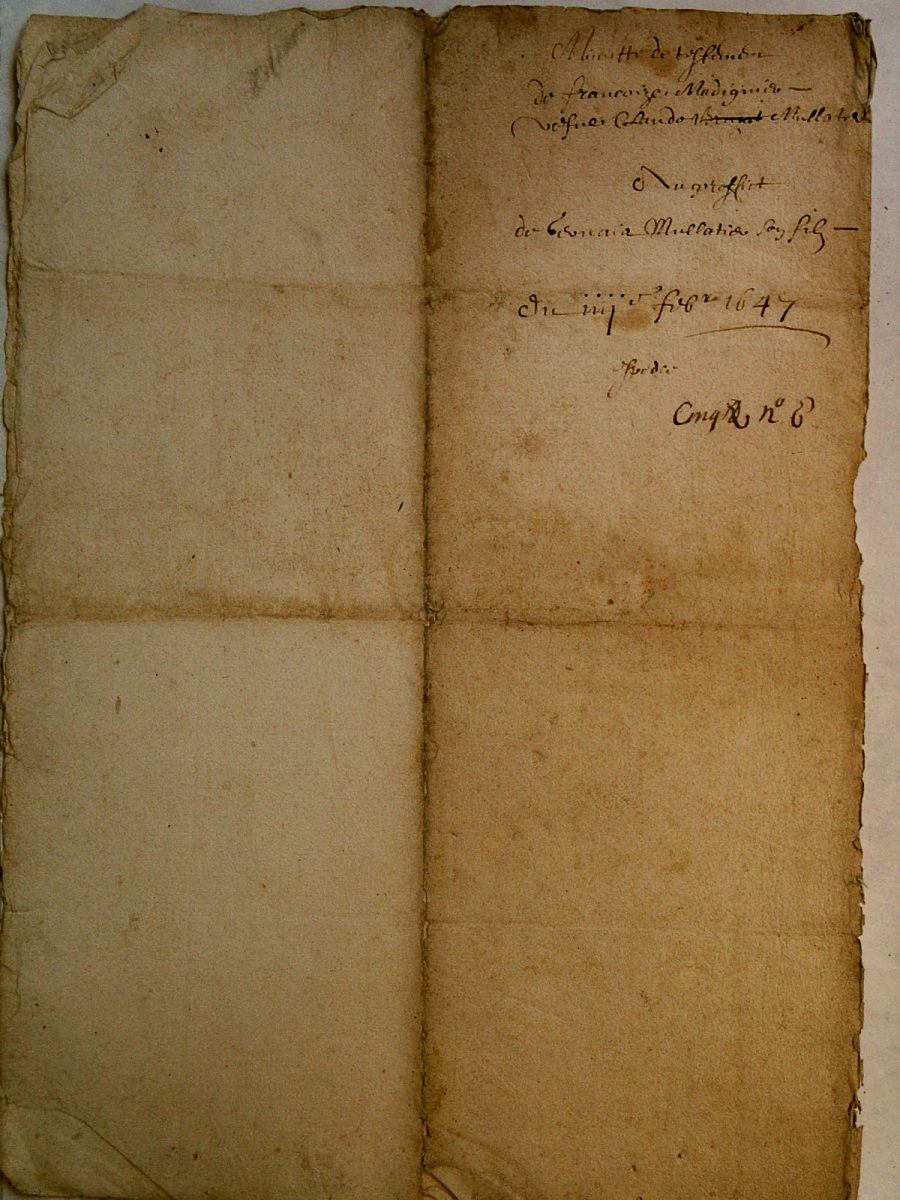 Minutte de testemen
de francoize Madignier
vefue Claude Mullatier
Au proffict
de Mullatier son filz
Du iiij e febr 1647
Expedie
n° 6